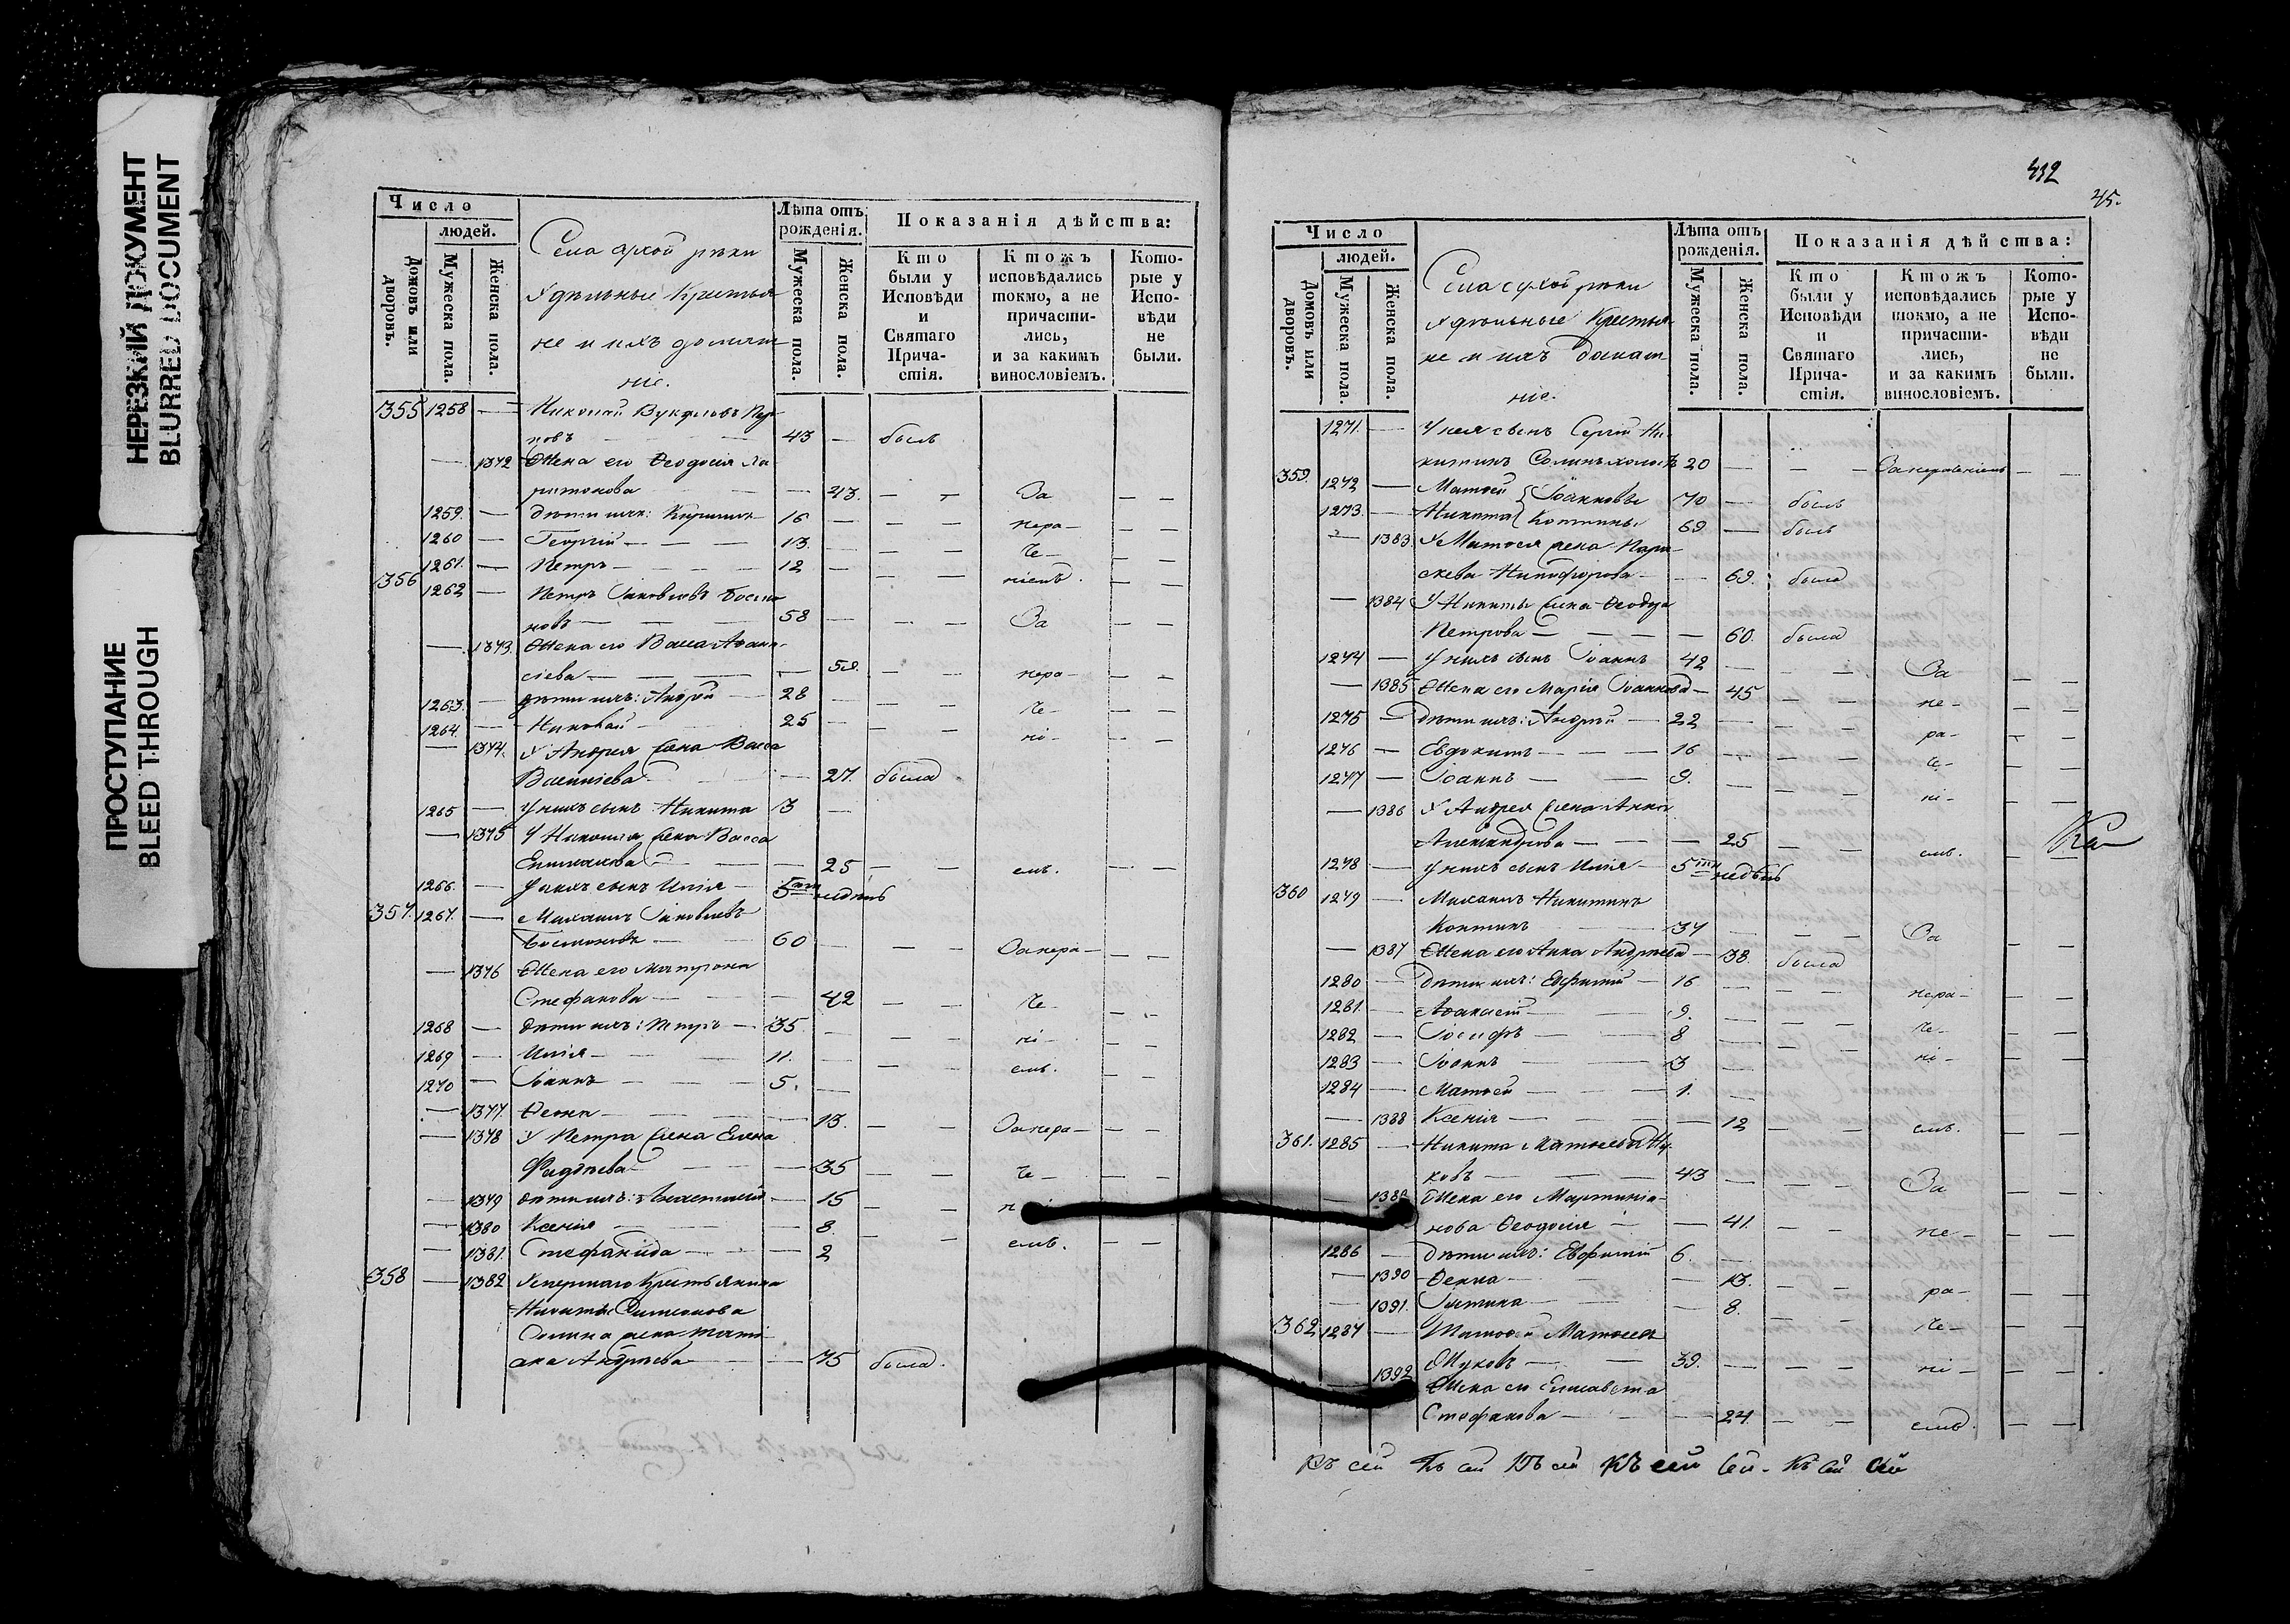 НЕРЕЗКИЙ ДОКУМЕНТ
BLURRED DOCUMENT
ПРОСТУПАНИЕ
BLEED THROUGH
Число
людей.
Домовъ или дворовъ.
Мужеска пола.
Женска пола.
Села сухой рѣки
Удѣльные Крестья
не и ихъ домаш
ніе.
Лѣта отъ рожденія.
Мужеска пола.
Женска пола.
Показанія дѣйства:
Кто были у Исповѣди и Святаго Прича- стія.
Ктожъ исповѣдались токмо, а не причасти- лись, и за какимъ винословіемъ.
Кото- рые у Испо- вѣди не были.
355 1258 — Николай
новъ — 43 — былъ
— 1372 Жена его Ѳеодосія Ла
ритонова — 43. — — За — —
1259. — дѣти ихъ: Кириллъ 16 — — — нера — — —
1260 — Георгій — — — 13. — — — че — — —
1261. — Петръ — — — 12 — — — ніемъ. — —
356 1262 — Петръ Іаковлевъ
новъ — — — 58 — — — За — —
— 1373. Жена его Васса Аѳана
сіева — — — нера — — —
1263. — дѣти ихъ: Андрей — 28 — — — че — — —
1264. — Николай — 25 — — — ні — — —
— 1374. У Андрея жена Васса
— 27. была
1265 — У нихъ сынъ Никита 3 —
— 1375 У Николая жена Васса
— 25 — — емъ. — —
1266. — У нихъ сынъ Илія — 5ти недѣль
357. 1267. — Михаилъ Іаковлевъ
— 60 — — — За нера — — —
— 1376 Жена его Матрона
Стефанова — — — 42 — — че — — —
1268 — дѣти ихъ: Петръ — 35. — — — ні — — —
1269 — Илія — — 11. — — — емъ. — —
1270 — Іоаннъ — — — 5. —
— 1377. Ѳекла — — — 13. — — За нера — — —
— 1378 У Петра жена Елена
Фадѣева — — — 35 — — че — — —
— 1379 дѣти ихъ: Анастасія — 15 — —
— 1380 Ксенія — — — 8. — — емъ. — —
— 1381. Стефанида — — — 2
358 — 1382 Умершаго Крестьянина
Никиты Симеонова
Сомина жена Тати
ана Андреева — — 75 была.
432
45.
Число
людей.
Домовъ или дворовъ.
Мужеска пола.
Женска пола.
Села сухой рѣки
Удѣльные Крестья
не и ихъ домаш
ніе.
Лѣта отъ рожденія.
Мужеска пола.
Женска пола.
Показанія дѣйства:
Кто были у Исповѣди и Святаго Прича- стія.
Ктожъ исповѣдались токмо, а не причасти- лись, и за какимъ винословіемъ.
Кото- рые у Испо- вѣди не были.
1271. — У нея сынъ Сергій Ни
китинъ Соминъ холостъ 20 — — — За нераченіемъ — —
359. 1272 — Матѳей Іоанновы 70 — былъ
1273. — Никита Коптины 69 — былъ
— 1383. У Матѳея жена Пара
скева Никифорова — — 69. была
— 1384 У Никиты жена Ѳеодора
Петрова — — — — 60. была
1274 — У нихъ сынъ Іоаннъ 42 — — — За — —
— 1385 Жена его Марія Іоаннова — 45 — — не — — —
1275 — дѣти ихъ: Андрей — 22 — — — ра — — —
1276 — Евдокимъ — — — 16 — — — че — — —
1277 — Іоаннъ — — 9. — — — ні — — —
— 1386 У Андрея жена Анна
Александрова — — — 25 — — емъ. — —
1278 — У нихъ сынъ Илія — 5ти недѣль
360 1279 — Михаилъ Никитинъ
Коптинъ — 37 — — — За — —
— 1387 Жена его Анна Андреева — 38. была
1280 — дѣти ихъ: Евфимій — 16 — — — нера — — —
1281. — Аѳанасій — 9. — — — че — — —
1282 — Іосифъ — — 8 — — — ні — — —
1283 — Іоаннъ — — 3 —
1284 — Матѳей — — 1. —
— 1388 Ксенія — — — 12 — — емъ. — —
361. 1285 — Никита Матѳеевъ Жу
ковъ — — 43 — — — За — —
— 1389 Жена его Мартиніа
нова Ѳеодосія — — 41. — — не — — —
1286 — дѣти ихъ: Евфимій 6. —
— 1390 Ѳекла — — — 13. — — ра — — —
— 1391. — 8. — — че — — —
362 1287 — Матѳеевъ
Жуковъ — — 39. — — — ні — — —
1392 Жена его Елисавета
Стефанова — — — 24. — — емъ. — —
Къ сей Къ сей Къ сей Къ сей сей - Къ сей